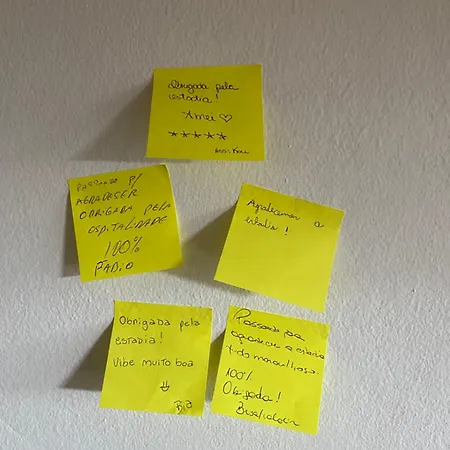 Obrigada pela
estadia!
Amei ♡
*****
Ass:
PASSANDO P/
AGRADESER
OBRIGADA PELA
ESPITALIDADE
100%
FABIO
Agradecemos a
estadia!
Obrigada pela
estadia!
Vibe muito boa
Bia
Passando pra
agradecer a estadia
tudo maravilhoso.
100%
Obrigada!